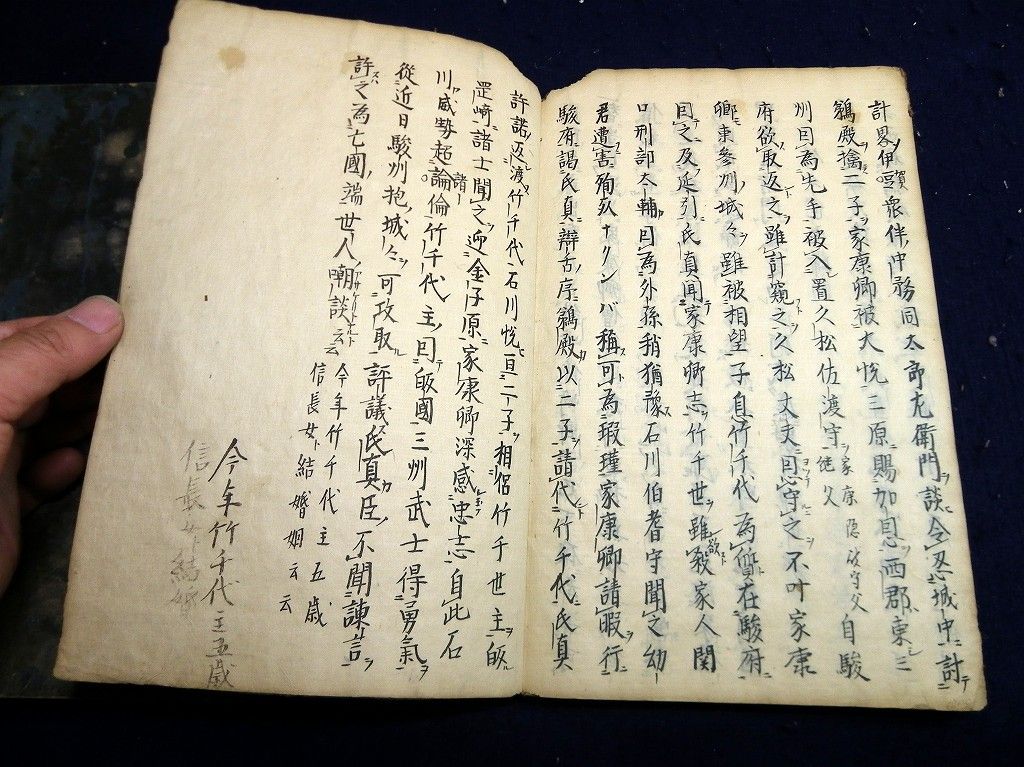 計畧伊賀衆伴中務同太郎左衛門談令忍城中討
鵜殿擒二子家康卿被大悦三原賜加恩西郡東三
州因為先手被入置久松佐渡守自駿
府欲取返之雖計窺之久松丈夫守之不叶家康
卿東参州城々雖被相望子息竹千代為質在駿府
因之及延引氏真聞家康卿志竹千世雖欲殺家人関
口刑部太輔因為外孫稍猶豫石川伯耆守聞之幼
君遭害殉ナクンバ稱可為瑕瑾家康卿請暇行
駿府謁氏真辯舌序鵜殿以二子請代竹千代氏真
許諾返渡竹千代石川悦亘二子相侶竹千世主皈
岡崎諸士聞之迎金子原家康卿深感忠志自此石
川威勢超諸論倫竹千代主回皈國三州武士得勇氣
從近日駿州抱城々可攻取評議氏真臣不聞諫言
許之為亡國端世人嘲談云云
今年竹千代主五歳
信長女結婚姻云云
今年竹千代主五歳
信長女結婚